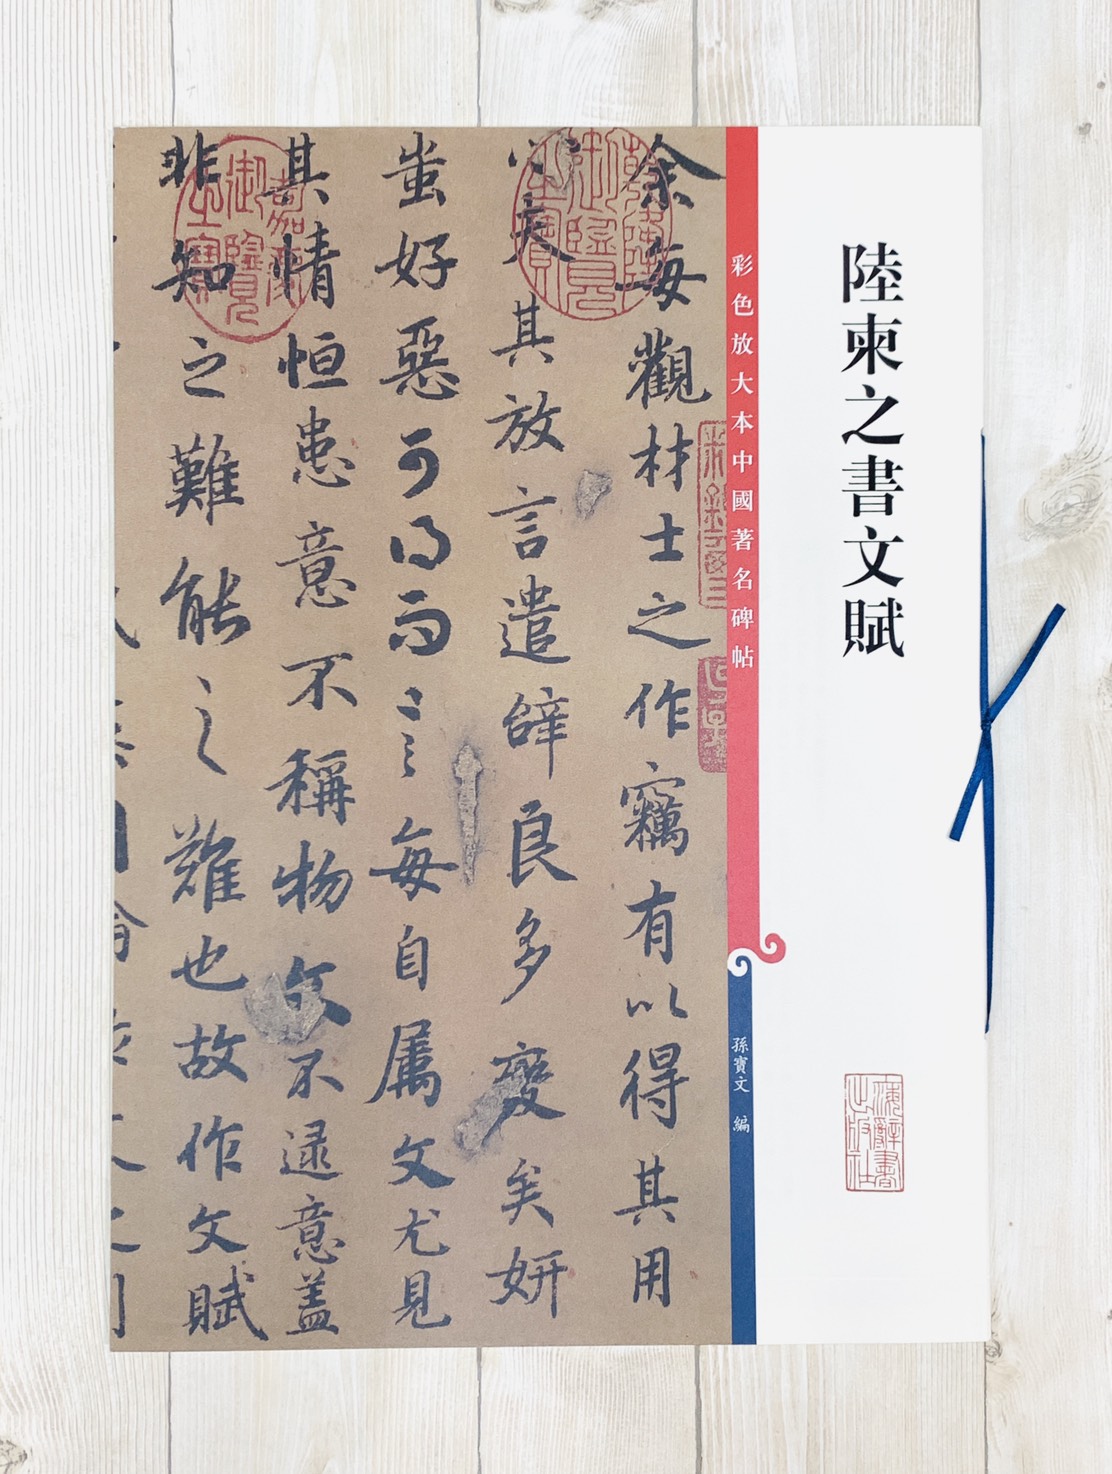 陸柬之書文賦
彩色放大本中國著名碑帖
孫寶文 編
余每觀材士之作竊有以得其用
心夫其放言遣辭良多變矣妍
蚩好惡可得而言每自属文尤見
其情恒患意不稱物文不逮意盖
非知之難能之難也故作文賦
乾隆御覽之寶
嘉慶御覽之寶